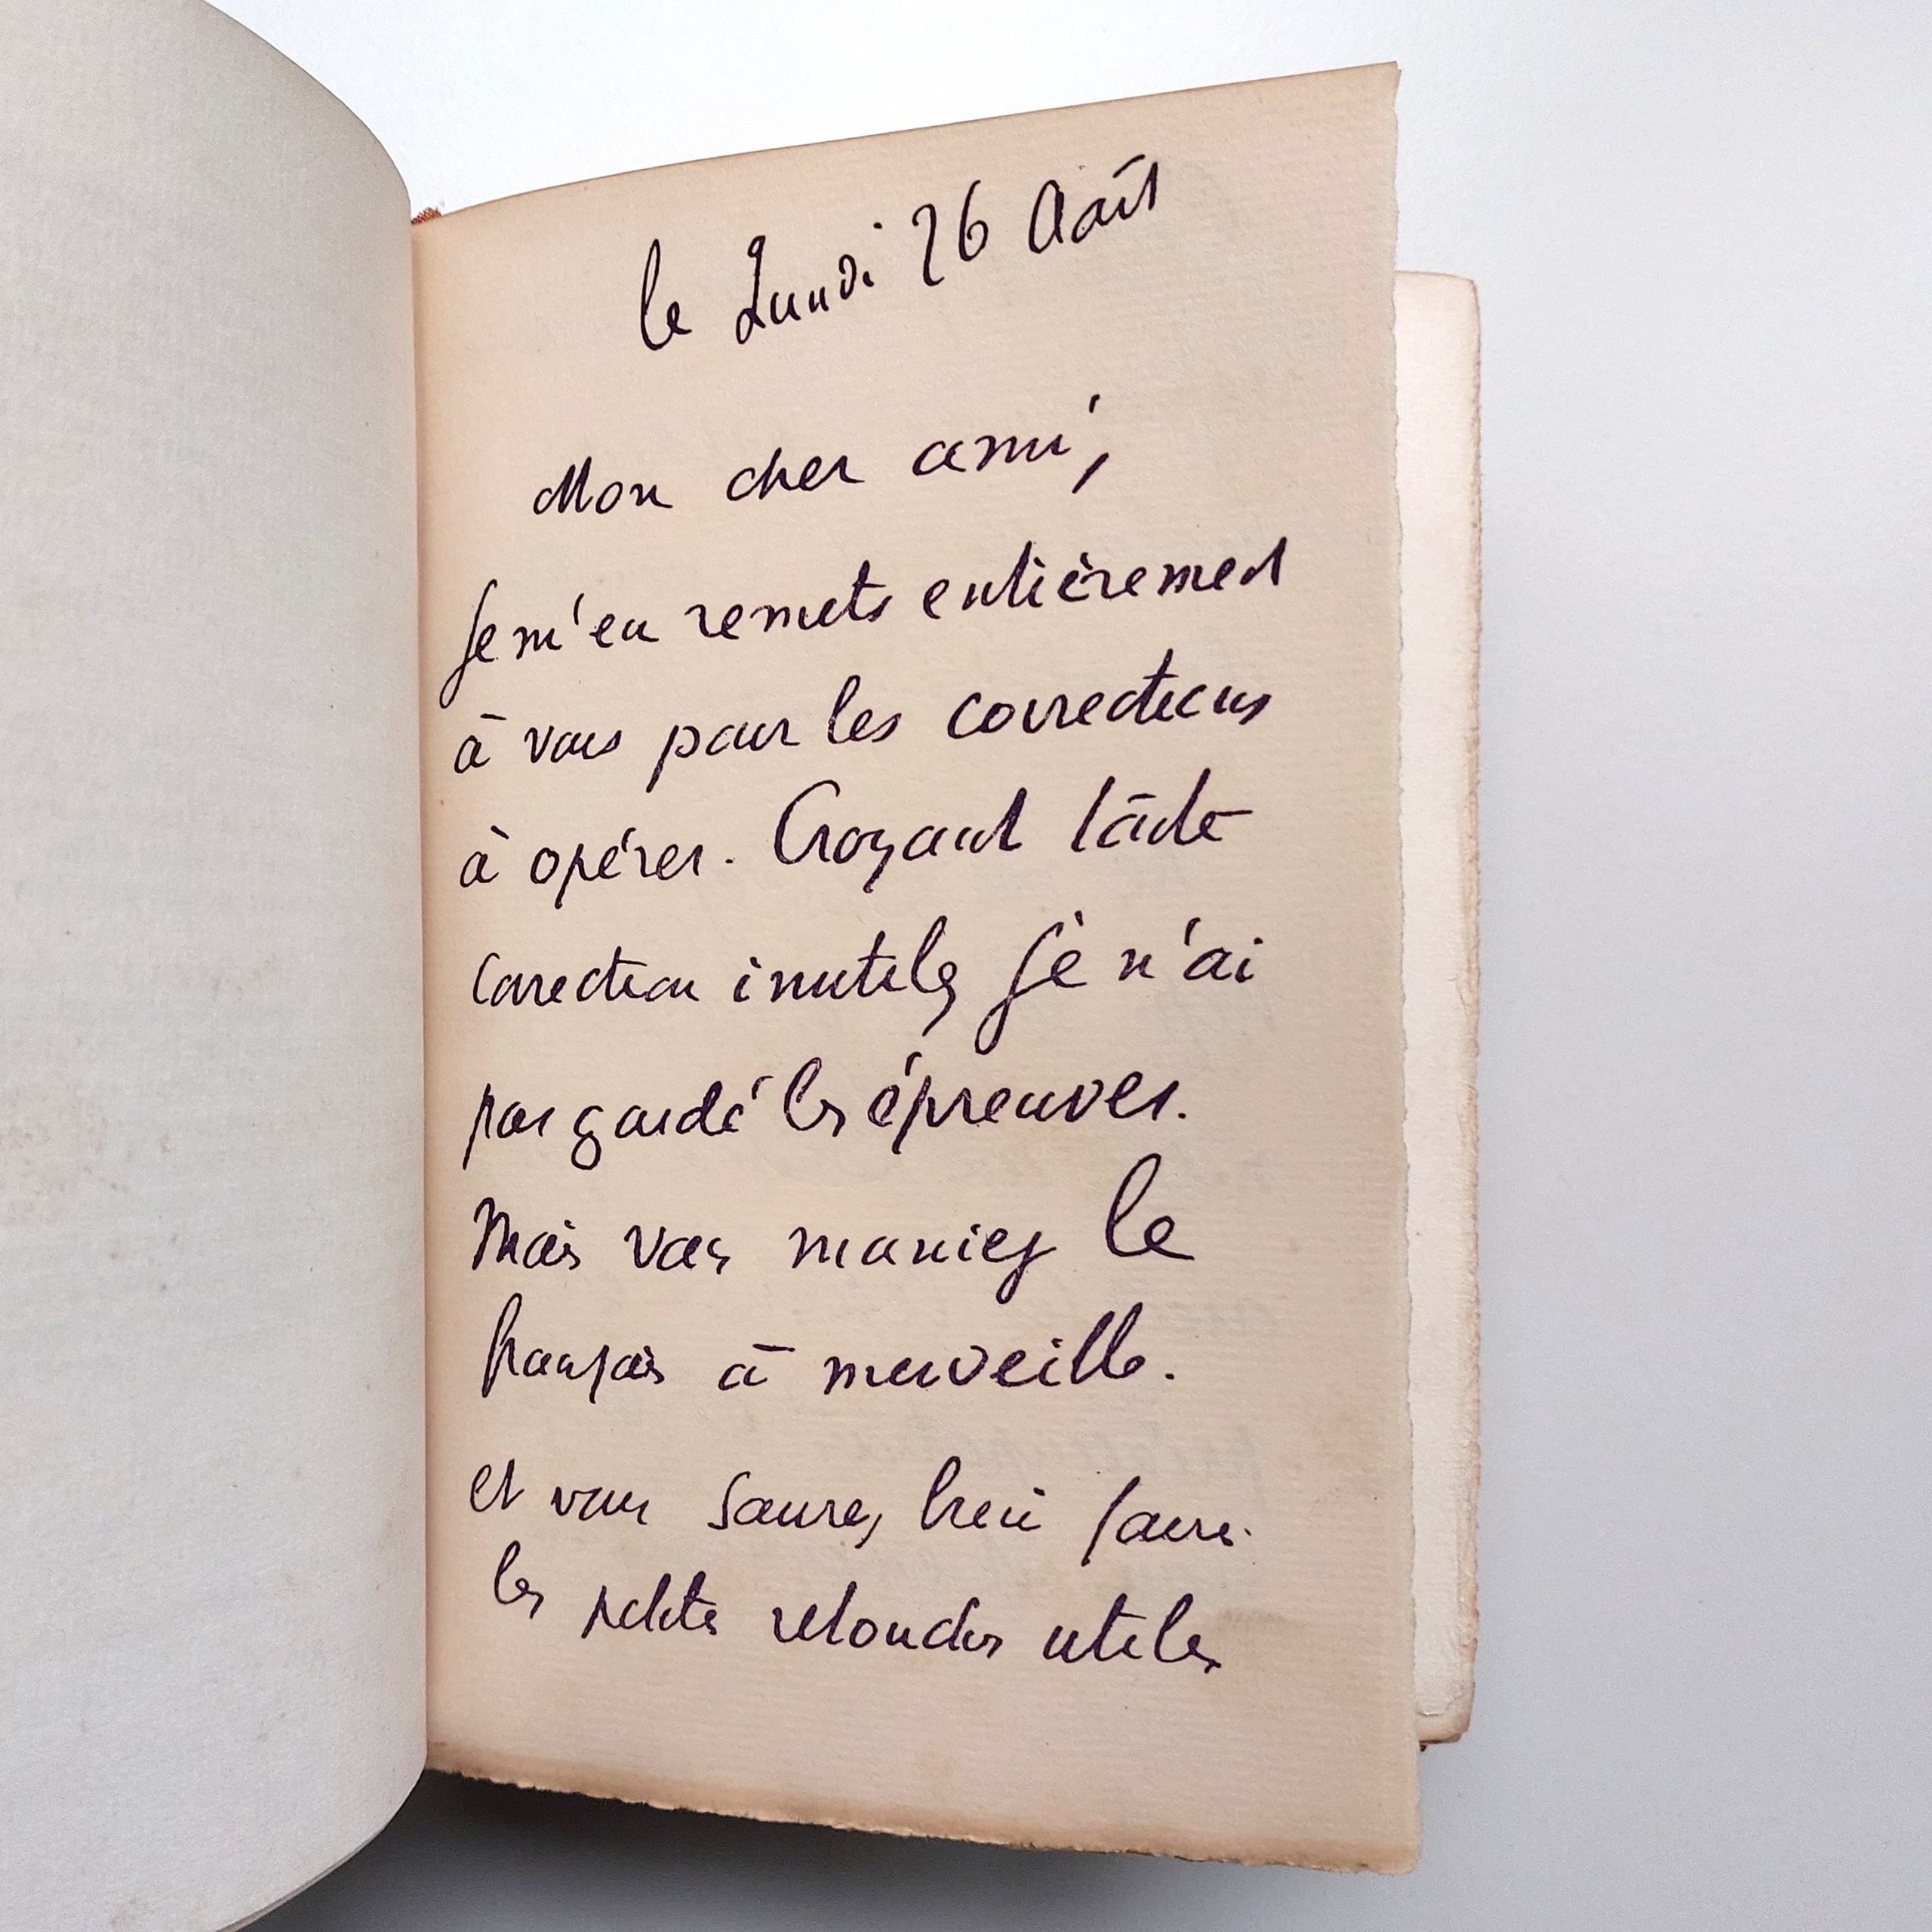 le Lundi 26 Août
Mon cher ami,
Je m'en remets entièrement
à vous pour les corrections
à opérer. Croyant toute
correction inutile, je n'ai
pas gardé les épreuves.
Mais vous maniez le
français à merveille.
et vous saurez bien faire
les petites retouches utiles